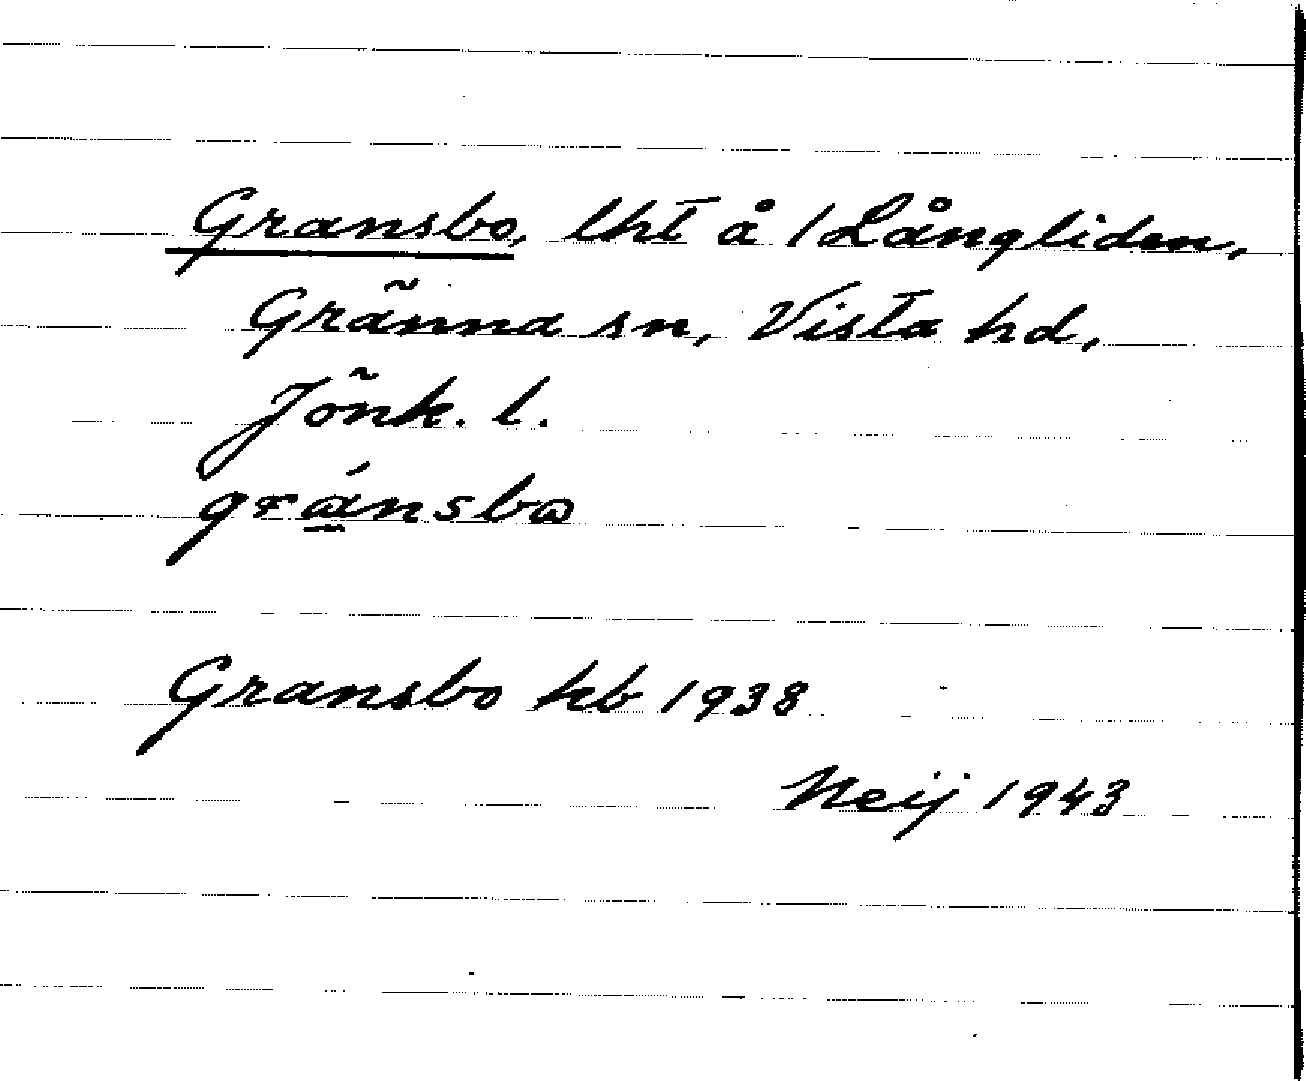 Gransbo, lht å /Långliden,
Gränna sn, Vista hd,
Jönk. l.
gránsbo
Gransbo kb 1938
Neij 1943